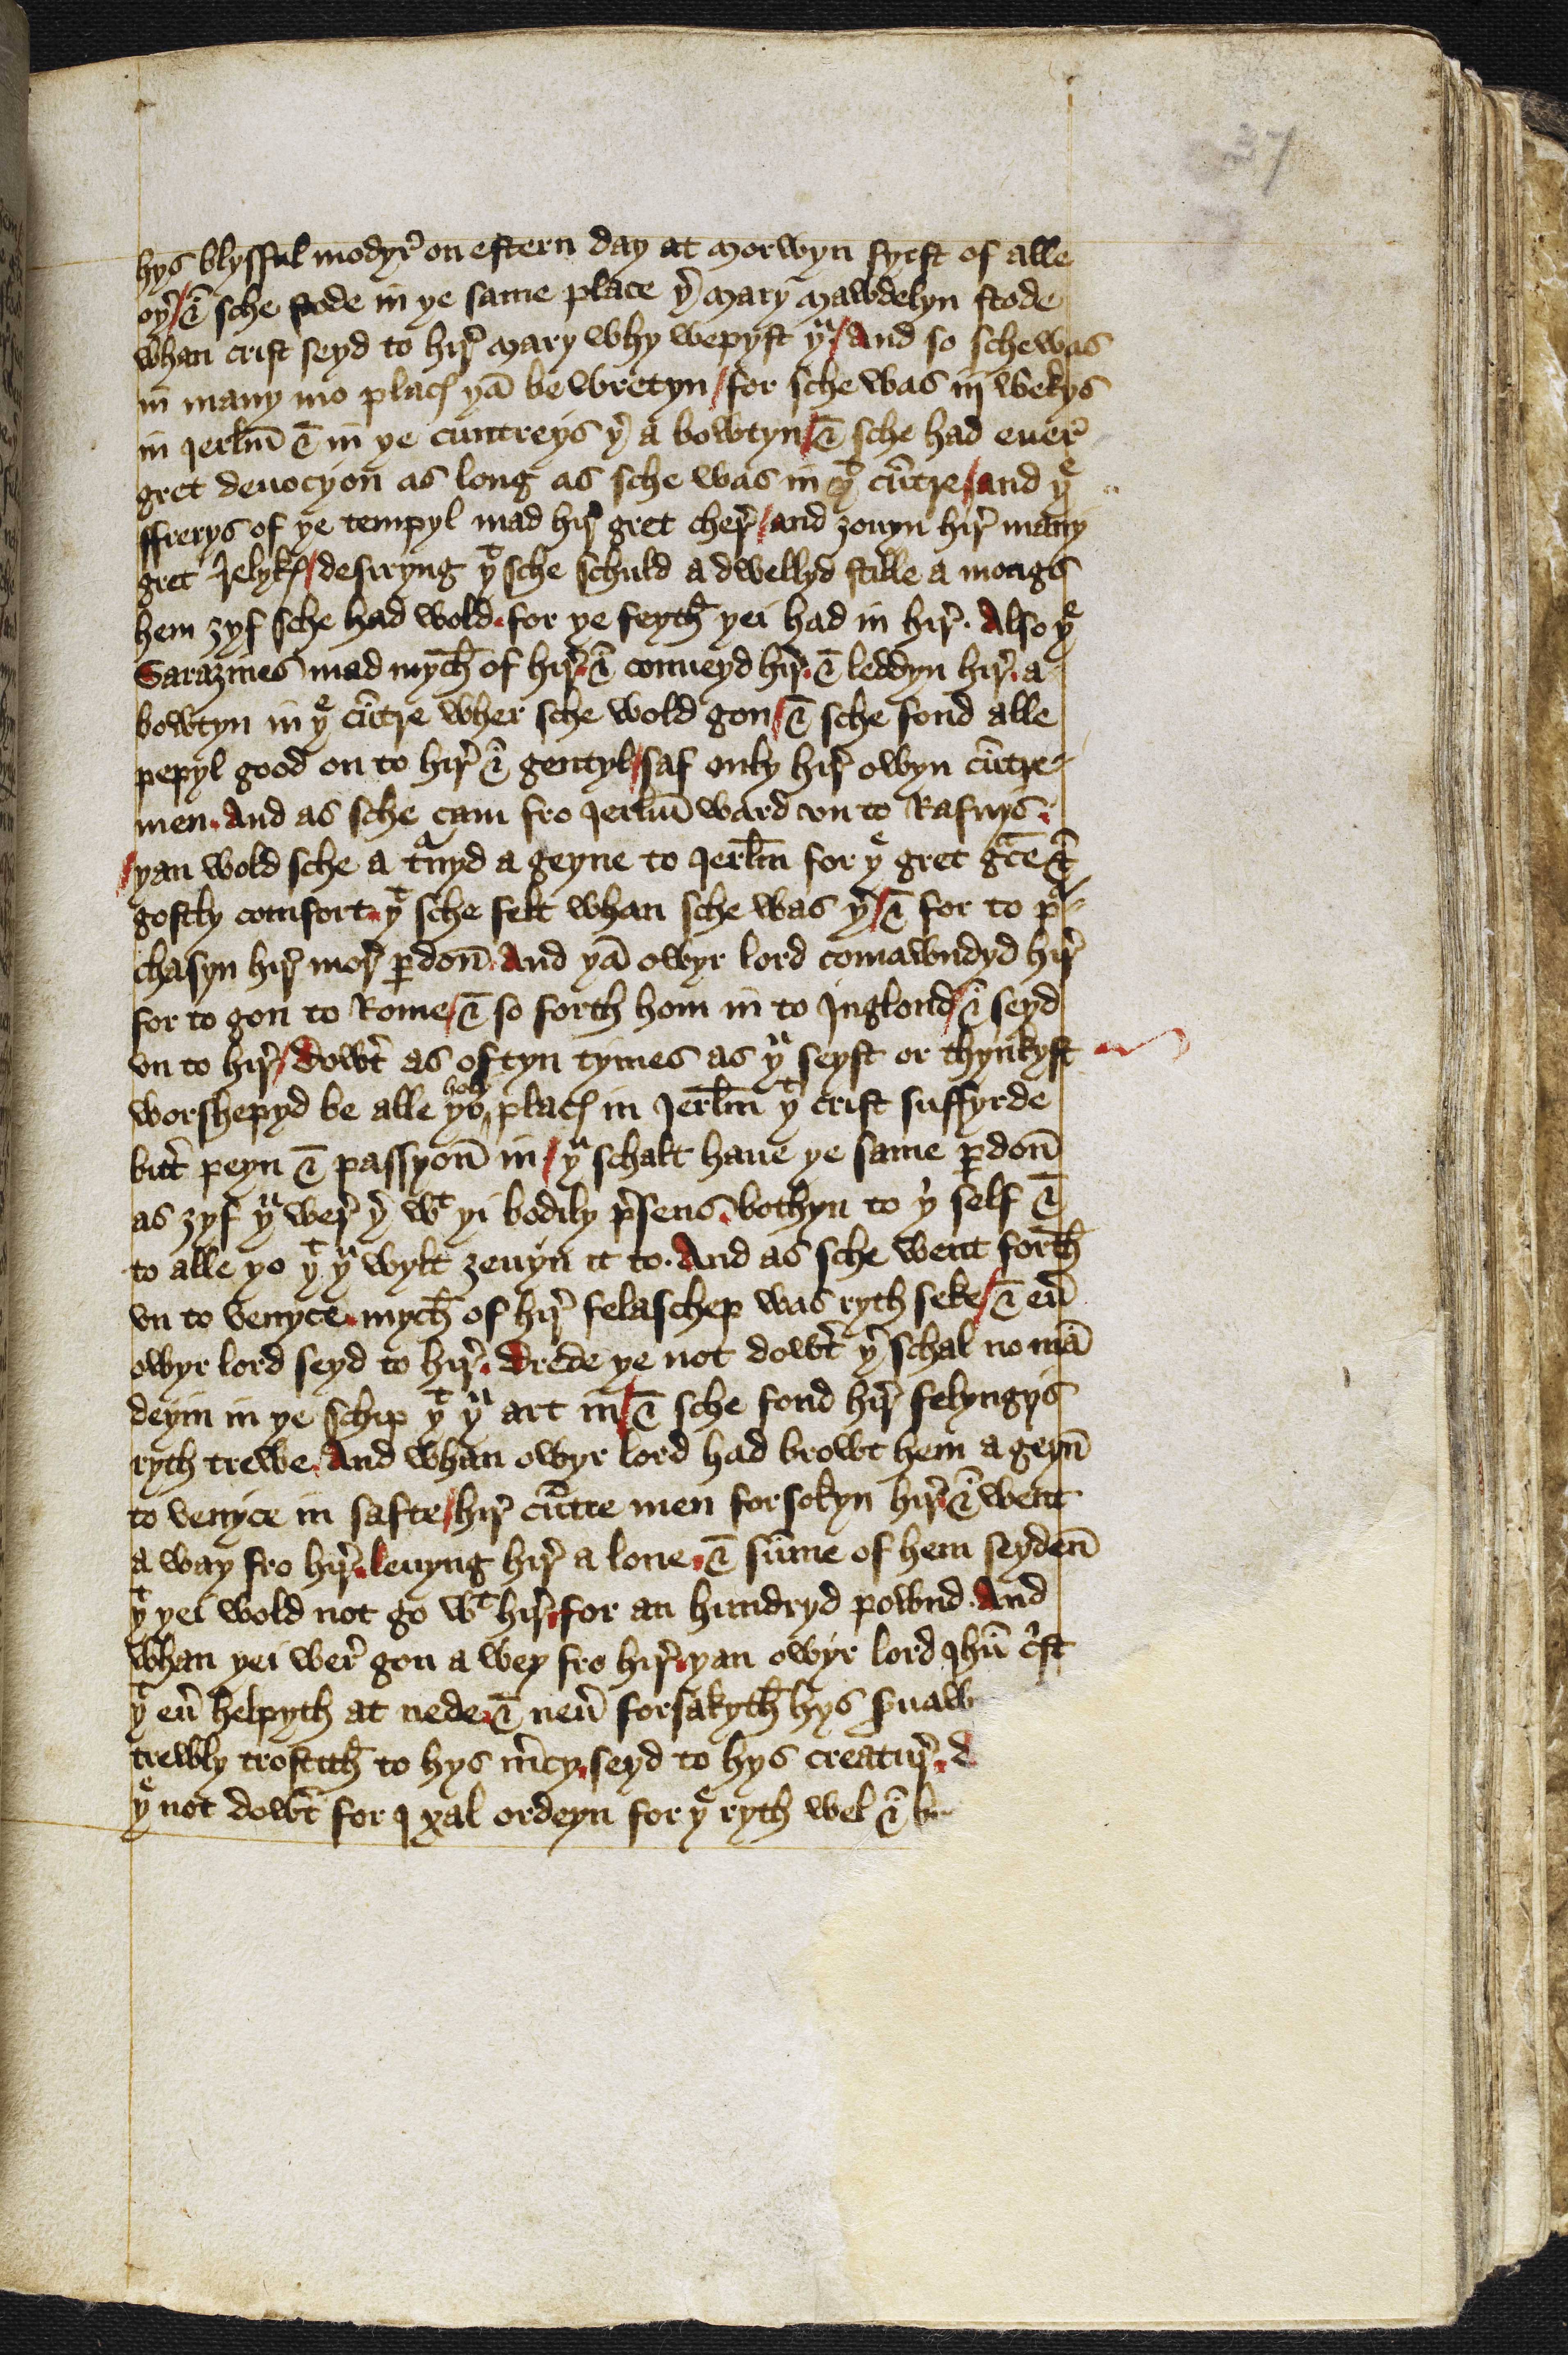 37
hys blysful modyr̛ on estern day at morwyn fyrst of alle
oyr̛ / & sche stode in ye same place yr̛ mary mawdelyn stode
whan crist seyd to hir̛ mary why wepyst yᵘ / And so sche was
in many mo placꝭ yā be wretyn / for sche was iij wekys
in jerlm̄ & in ye cuntreys yr̛ a bowtyn / & sche had euer̛
gret deuocyon as long as sche was in yᵗ cūtre / and yᵉ
ffrerys of ye tempyl mad hir̛ gret cher̛ / and zouyn hir̛ many
gret relykꝭ / desiryng yᵗ sche schuld a dwellyd stille a mongs
hem zyf sche had wold . for ye feyth̄ yei had in hir̛ . Also yᵉ
Sarazines mad mych̄ of hir̛ . & conueyd hir̛ . & leddyn hir̛ . a
bowtyn in yᵉ cūtre wher sche wold gon / & sche fond alle
pepyl good on to hir̛ & gentyl / saf only hir̛ owyn cūtre
men . And as sche cam fro jerlm̄ ward vn to Rafnys .
/ yan wold sche a tᵃnyd a geyne to jerlm̄ for yᵉ gret gᵃce &
gostly comfort . yᵗ sche felt whan sche was yr̛ / & for to p̛
chasyn hir̛ mor̛ ꝑdon̄ . And yā owyr lord comawndyd hir̛
for to gon to Rome / & so forth hom in to Jnglond / & seyd
vn to hir̛ / dowt̛ as oftyn tymes as yᵘ seyst or thynkyst
worshepyd be alle yo ‸holy placꝭ in Jerlm̄ yᵗ crist suffyrde
bitt̛ peyn & passyon̄ in / yᵘ schalt haue ye same ꝑdon̄
as zyf yᵘ wer̛ yr̛ wᵗ yi bodily p̛sens . bothyn to yⁱ self &
to alle yo yᵗ yᵘ wylt zeuyn it to . And as sche went forth̄
vn to venyce . mych̄ of hir̛ felaschep was ryth seke / & eư
owyr lord seyd to hir̛ . drede ye not dowt̛ yr̛ schal no mā
deyin in ye schip yᵗ yᵘ art in / & sche fond hir̛ felyngys
ryth trewe . And whan owyr lord had browt hem a geyn̄
to venyce in safte / hir̛ cūtre men forsokyn hir̛ . & went
a way fro hir̛ . leuyng hir̛ a lone . & sūme of hem seyden̄
yᵗ yei wold not go wᵗ hir̛ . for an hundryd pownd . And
whan yei wer̛ gon a wey fro hir̛ . yan owyr lord jhū c̛st
yᵗ eư helpyth at nede . & neư forsakyth̄ hys s̛uaw
trewly trostith̄ to hys m̛cy . seyd to hys creatur̛ . d
yᵉ not dowt̛ for j xal ordeyn for yᵉ ryth wel & br